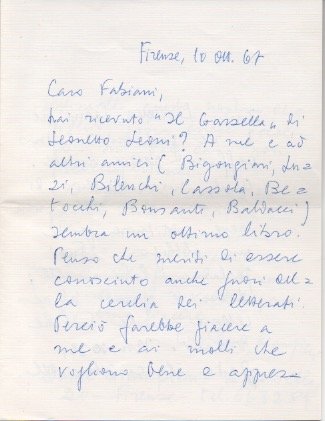 Firenze, 10 ott. 67
Caro Fabiani,
hai ricevuto "Il Gazzella" di
Leonetto Leoni? A me e ad
altri amici (Bigongiari, Lu=
zi, Bilenchi, Cassola, Be=
tocchi, Bonsanti, Baldacci)
sembra un ottimo libro.
Penso che meriti di essere
conosciuto anche fuori del=
la cerchia dei letterati.
Perciò farebbe piacere a
me e ai molti che
vogliono bene e apprez=